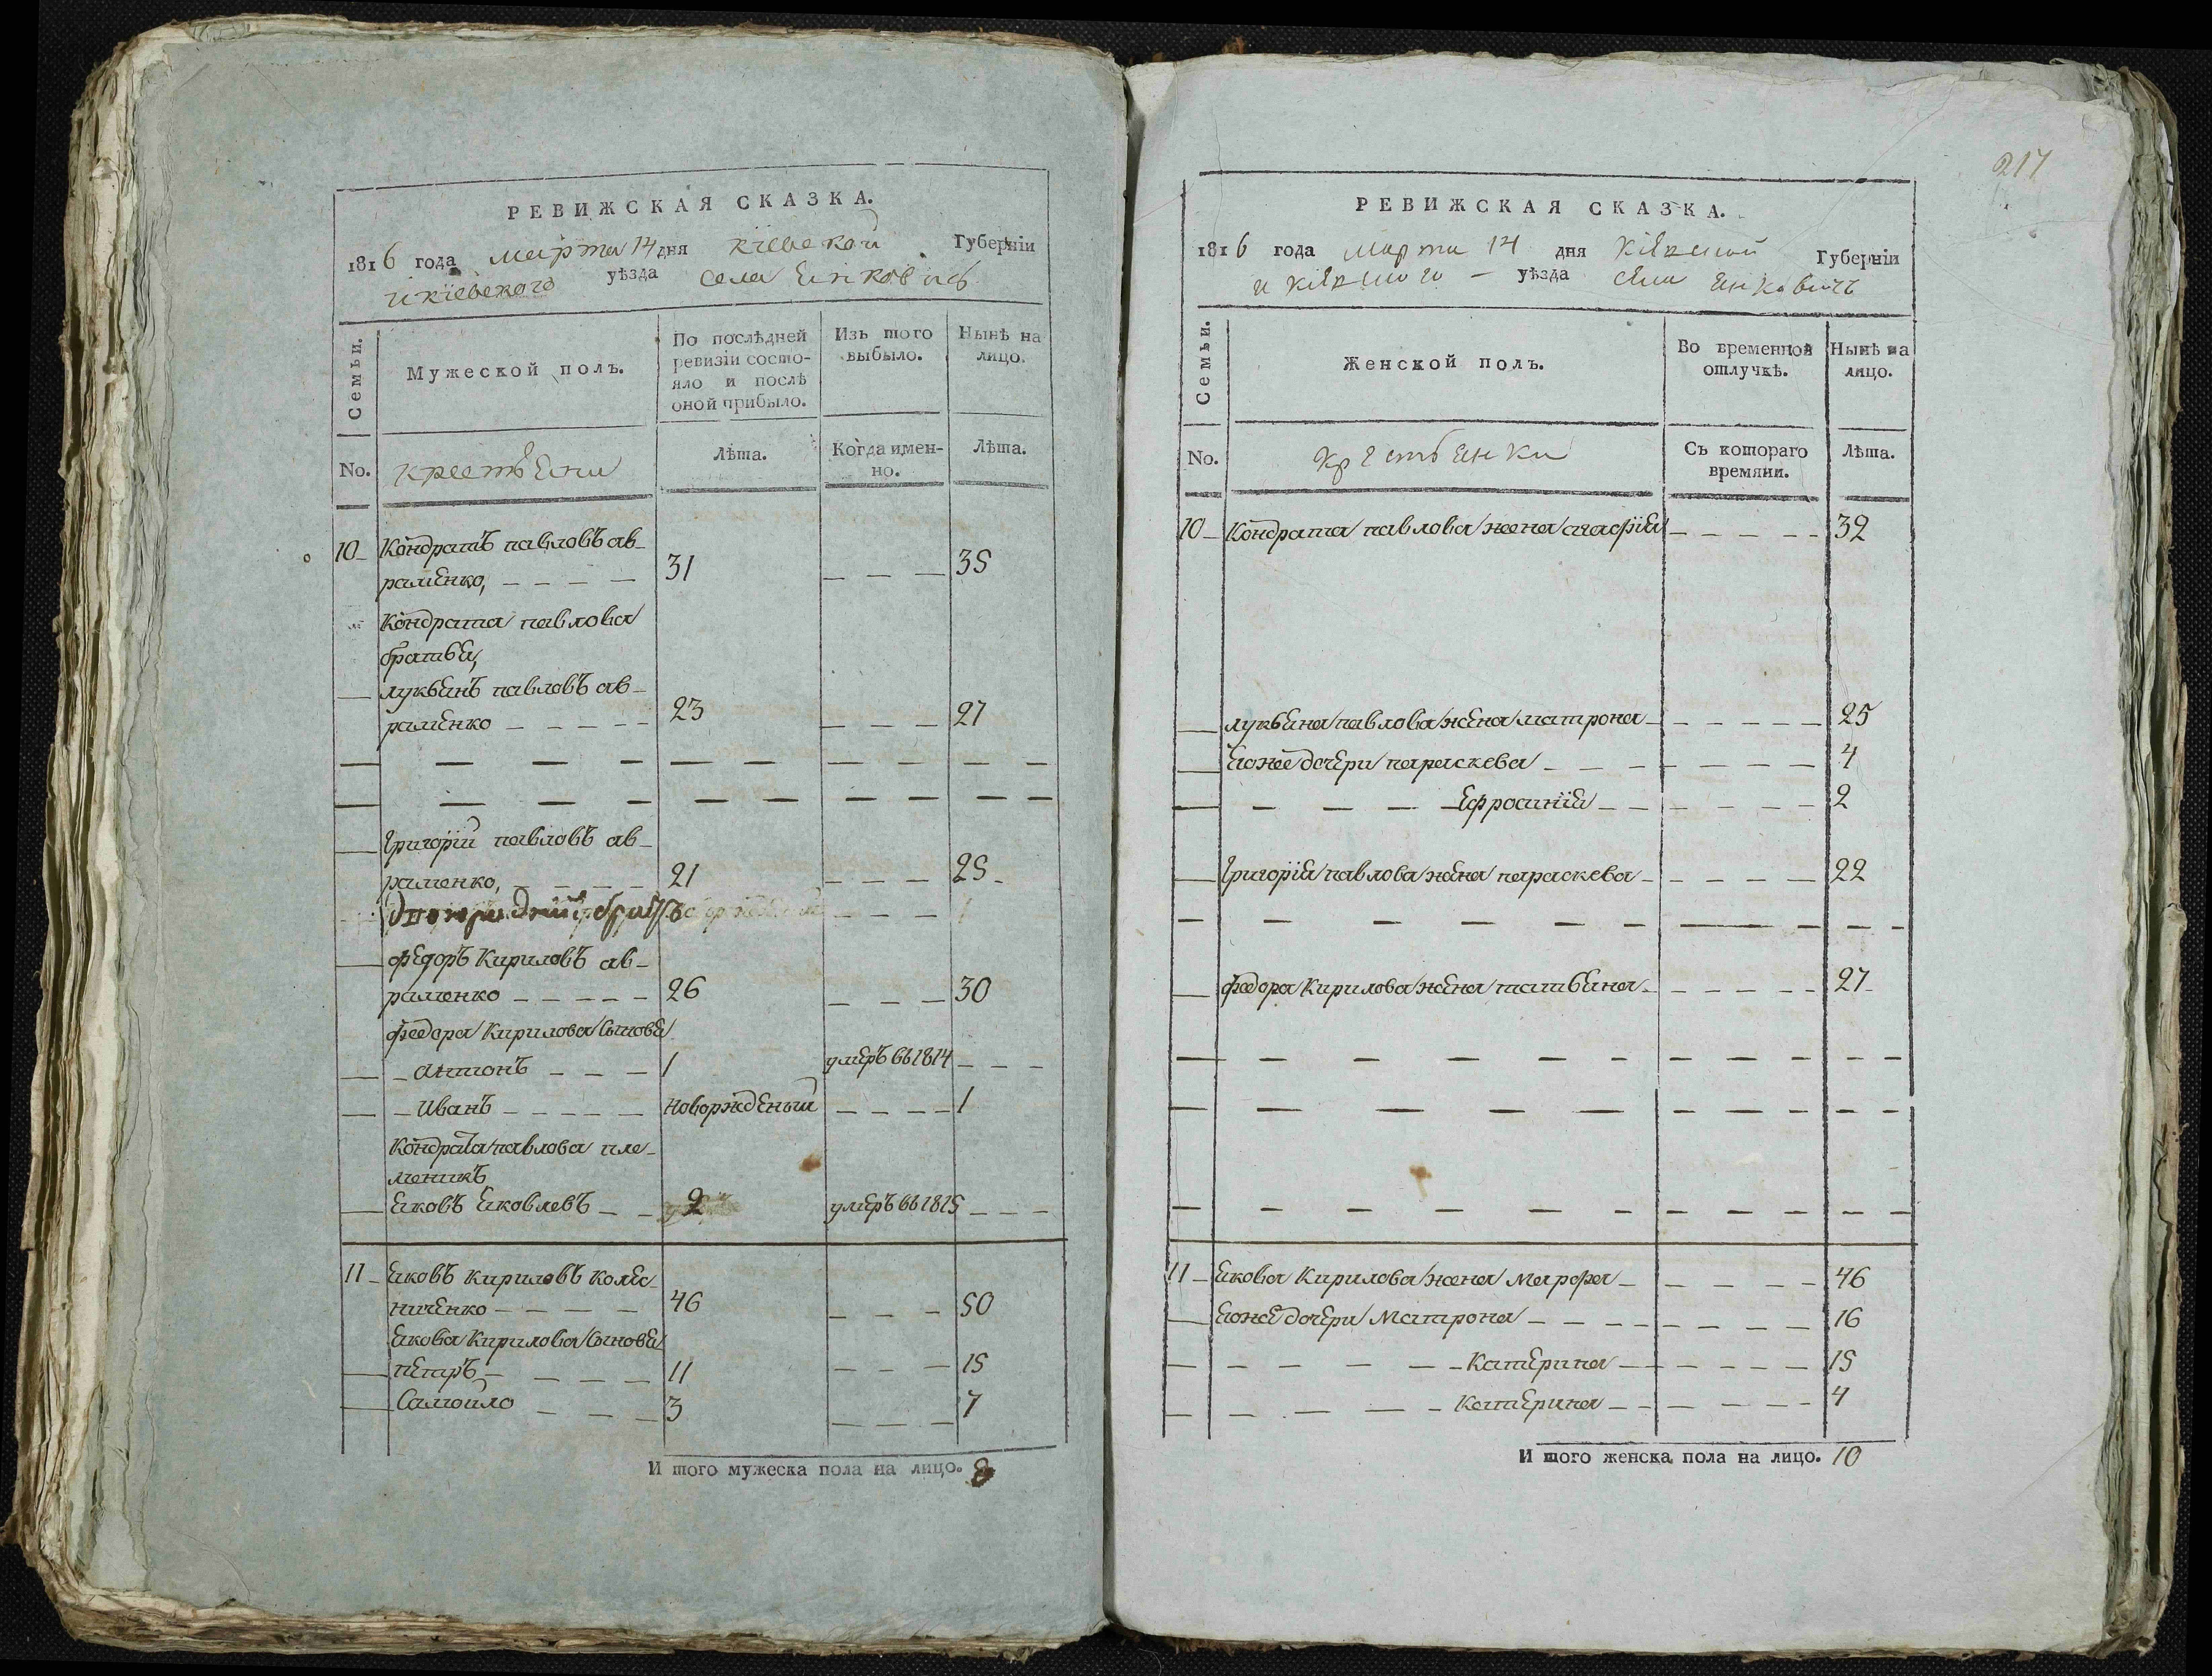 РЕВИЖСКАЯ СКАЗКА.
1816 года марта 14 дня кіевской Губерніи
икіевского уѣзда села Янковичъ
Семьи.
Мужеской полъ.
По послѣдней ревизіи состо-
яло и послѣ
оной прибыло.
Изъ того
выбыло.
Нынѣ на
лицо.
No.
крестьяни
Лѣта.
Когда имен-
но.
Лѣта.
10 Кондратъ павловъ ав-
раменко, 31 35
Кондрата павлова
братья,
лукьянъ павловъ ав-
раменко 23 27
григорій павловъ ав-
раменко, 21 25
федоръ Кириловъ ав-
раменко 26 30
федора Кирилова Сыновя
антонъ 1 умеръ вь 1814
Иванъ новорожденый 1
Кондрата павлова пле-
меникъ
яковъ яковлевъ 2 умеръ вь 1815
11 яковъ кириловъ колес-
ниченко 46 50
якова кирилова Сыновя
петръ 11 15
Самойло 3 7
И того мужеска пола на лицо. 8
217
РЕВИЖСКАЯ СКАЗКА.
1816 года марта 14 дня кіевской Губерніи
и кіевского уѣзда села янковичъ
Семьи.
Женской полъ.
Во временной
отлучкѣ.
Нынѣ на
лицо.
No.
крестьянки
Съ котораго
времяни.
Лѣта.
10 Кондрата павлова жена агафія 32
лукьяна павлова жена матрона 25
ея же дочери параскева 4
ефросинія 2
григорія павлова жена параскева 22
федора Кирилова жена татьяна 27
11 якова Кирилова жена марфа 46
ея же дочери матрона 16
катерина 15
катерина 4
И того женска пола на лицо. 10